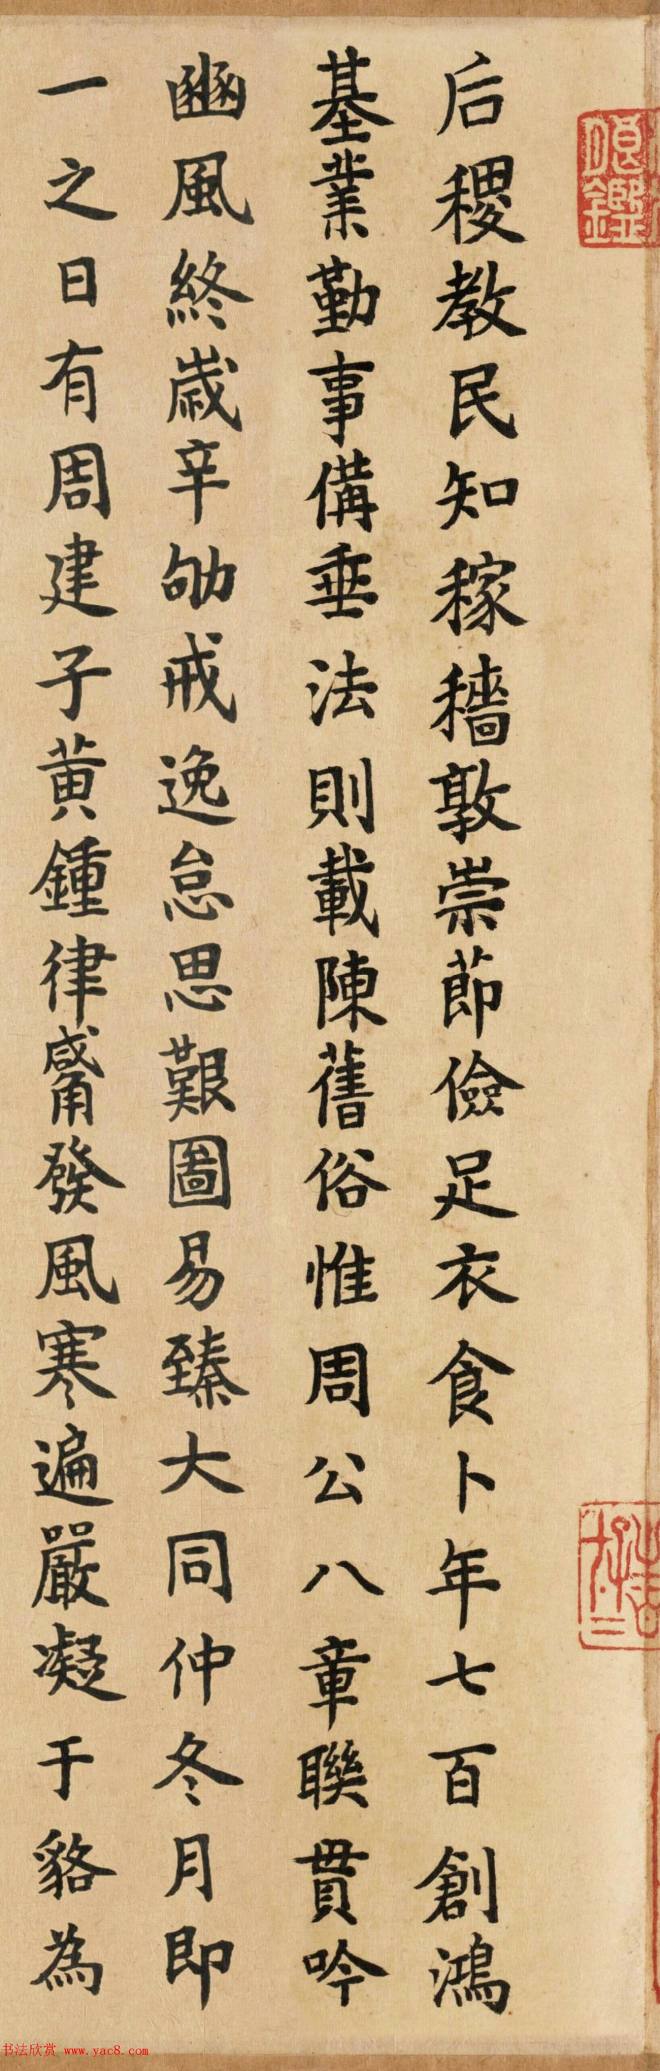 后稷教民知稼穡敦崇節儉足衣食卜年七百創鴻
基業勤事備垂法則載陳舊俗惟周公八章聯貫吟
豳風終歲辛劬戒逸怠思艱圖易臻大同仲冬月即
一之日有周建子黃鍾律觱發風寒遍嚴凝于貉為
书法欣赏 www.yac8.com